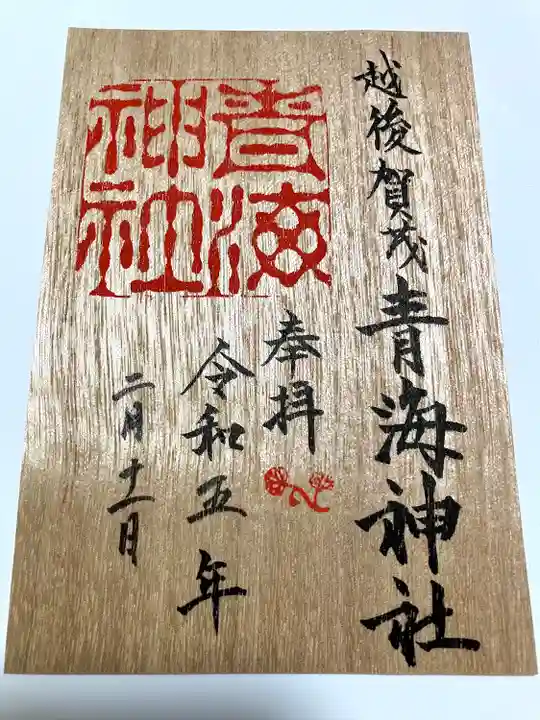 越後賀茂青海神社
奉拝
令和五年
二月十一日
青海
神社